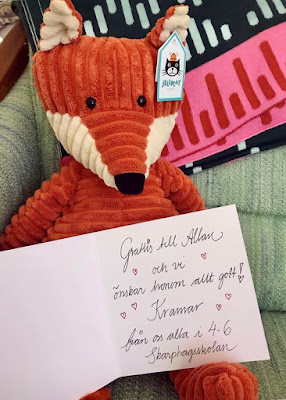 JELLYCAT
Grattis till Allan
och vi
önskar honom allt gott!
Kramar
från oss alla i 4-6
Skarphagsskolan